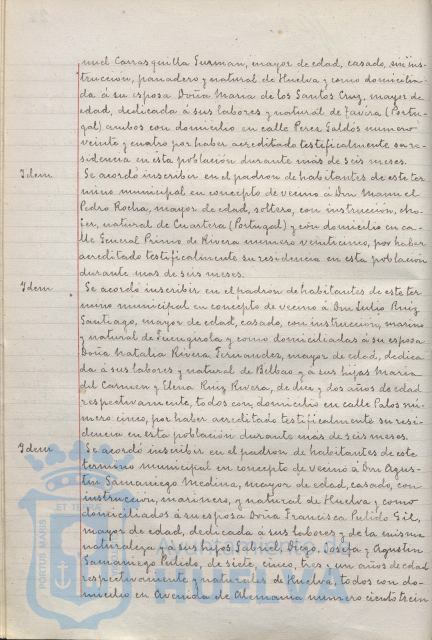 nuel Carrasquilla Guzman, mayor de edad, casado, sin ins-
truccion, panadero y natural de Huelva y como domicilia-
da á su esposa Doña Maria de los Santos Cruz, mayor de
edad, dedicada á sus labores y natural de Tavira (Portu-
gal) ambos con domicilio en calle Perez Galdós numero
veinte y cuatro por haber acreditado testificalmente su re-
sidencia en esta población durante más de seis meses.
Idem Se acordó inscribir en el padron de habitantes de este ter
mino municipal en concepto de vecino á Don Manuel
Pedro Rocha, mayor de edad, soltero, con instrucción, cho-
fer, natural de Cuartera (Portugal) y con domicilio en ca-
lle General Primo de Rivera numero veinticinco, por haber
acreditado testificalmente su residencia en esta población
durante mas de seis meses.
Idem Se acordó inscribir en el padron de habitantes de este ter
mino municipal en concepto de vecino á Don Julio Ruiz
Santiago, mayor de edad, casado, con instrucción, marino
y natural de Fuengirola y como domiciliadas á su esposa
Doña Natalia Rivera Fernandez, mayor de edad, dedica
da á sus labores y natural de Belbao y á sus hijas Maria
del Carmen y Elena Ruiz Rivera, de diez y dos años de edad
respectivamente, todos con domicilio en calle Palos nú-
mero cinco, por haber acreditado testificalmente su resi-
dencia en esta población durante más de seis meses.
Idem Se acordó inscribir en el padron de habitantes de este
termino municipal en concepto de vecino á Don Agus-
tin Samaniego Medina, mayor de edad, casado, con
instruccion, marinero, y natural de Huelva y como
domiciliados á su esposa Doña Francisca Pulido Gil,
mayor de edad, dedicada á sus labores y de la misma
naturaleza y á sus hijos Gabriel, Diego, Josefa y Agustin
Samaniego Pulido, de siete, cinco, tres y un años de edad
respectivamente y naturales de Huelva, todos con do-
micilio en Avenida de Alemania numero ciento trein
PORTUS MARIS ET TE